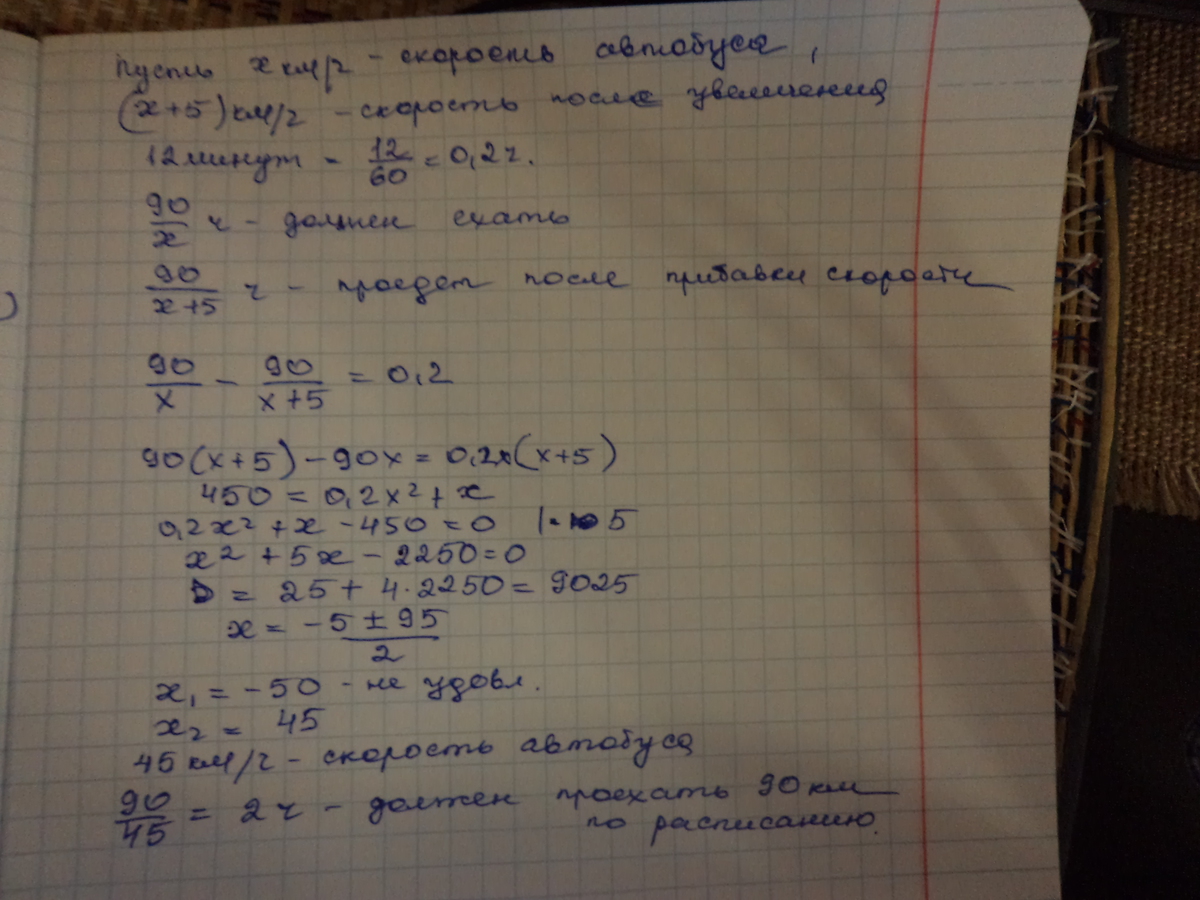 Пусть x км/ч – скорость автобуса,
(x+5) км/ч – скорость после увеличения
12 минут – 12/60 = 0,2 ч.
90/x ч – должен ехать
90/(x+5) ч – проедет после прибавки скорости
90/x – 90/(x+5) = 0,2
90(x+5) – 90x = 0,2x(x+5)
450 = 0,2x² + x
0,2x² + x – 450 = 0 | · 5
x² + 5x – 2250 = 0
D = 25 + 4·2250 = 9025
x = (-5 ± 95)/2
x₁ = -50 – не удовл.
x₂ = 45
45 км/ч – скорость автобуса
90/45 = 2 ч – должен проехать 90 км
по расписанию.